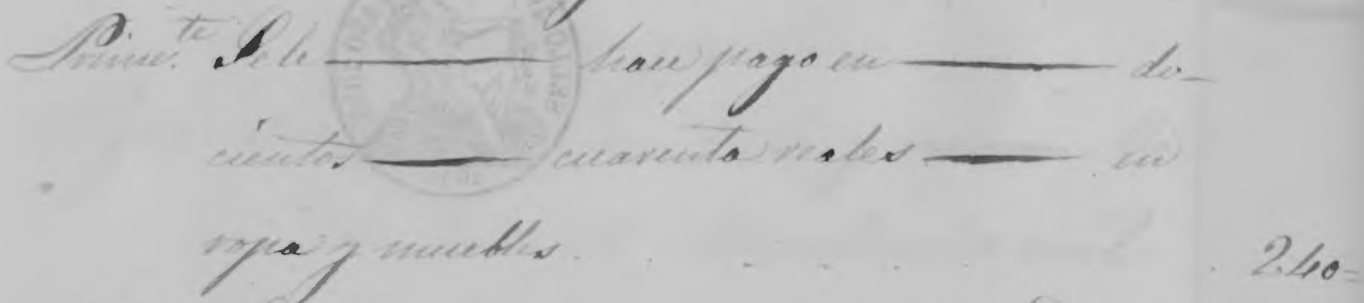 Prime.te Se le hace pago en do-
cientos cuarenta reales en
ropa y muebles. . . . . . 240=